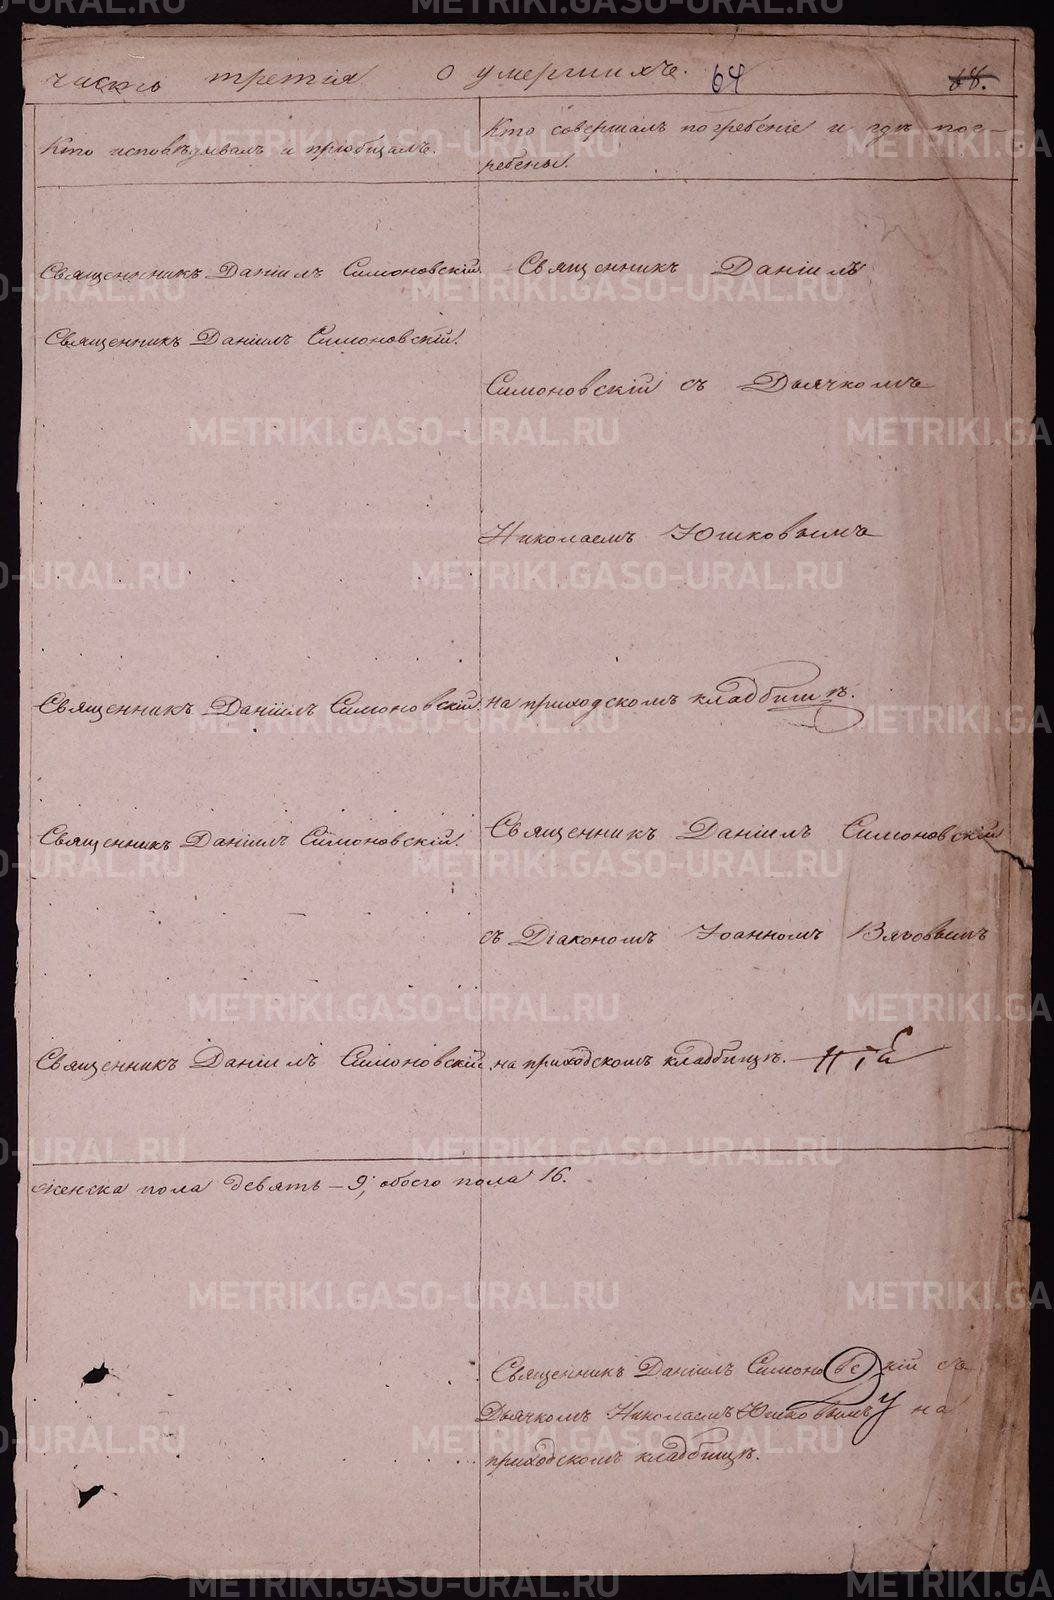 часть третія о умершихъ. 64 68.
Кто исповѣдывалъ и пріобщалъ.
Кто совершалъ погребеніе и гдѣ пог-
ребены.
Священникъ Даніилъ Симоновскій.
Священникъ Даніилъ
Священникъ Даніилъ Симоновскій.
Симоновскій съ Дьячкомъ
Николаемъ Юшковымъ
Священникъ Даніилъ Симоновскій.
на приходскомъ кладбищѣ.
Священникъ Даніилъ Симоновскій.
Священникъ Даніилъ Симоновскій
съ Діакономъ Іоанномъ
Священникъ Даніилъ Симоновскій
на приходскомъ кладбищѣ.
женска пола девять – 9; обоего пола 16.
Священникъ Даніилъ Симоновскій съ
Дьячкомъ Николаемъ Юшковымъ на
приходскомъ кладбищѣ.
METRIKI.GASO-URAL.RU